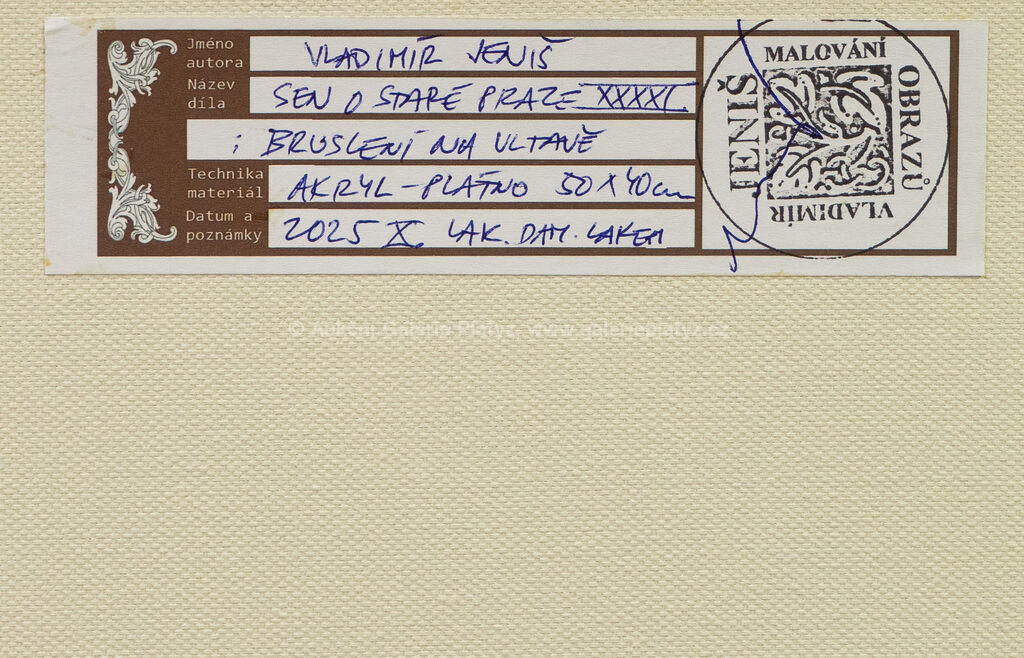 Jméno autora VLADIMÍR JENIŠ
Název díla SEN O STARÉ PRAZE XXXXI.
: BRUSLENÍ NA VLTAVĚ
Technika materiál AKRYL-PLÁTNO 50X40cm
Datum a poznámky 2025 X. LAK. DAM. LAKEM
MALOVÁNÍ
OBRAZŮ
VLADIMÍR
JENIŠ
© Aukční Galerie Platýz, www.galerieplatyz.cz